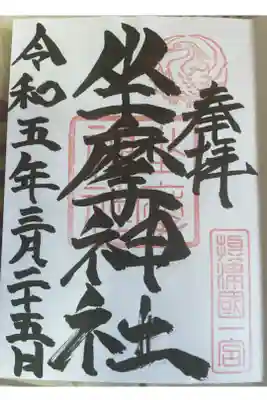 奉拝
摂津國一宮
坐摩神社
令和五年三月二十五日